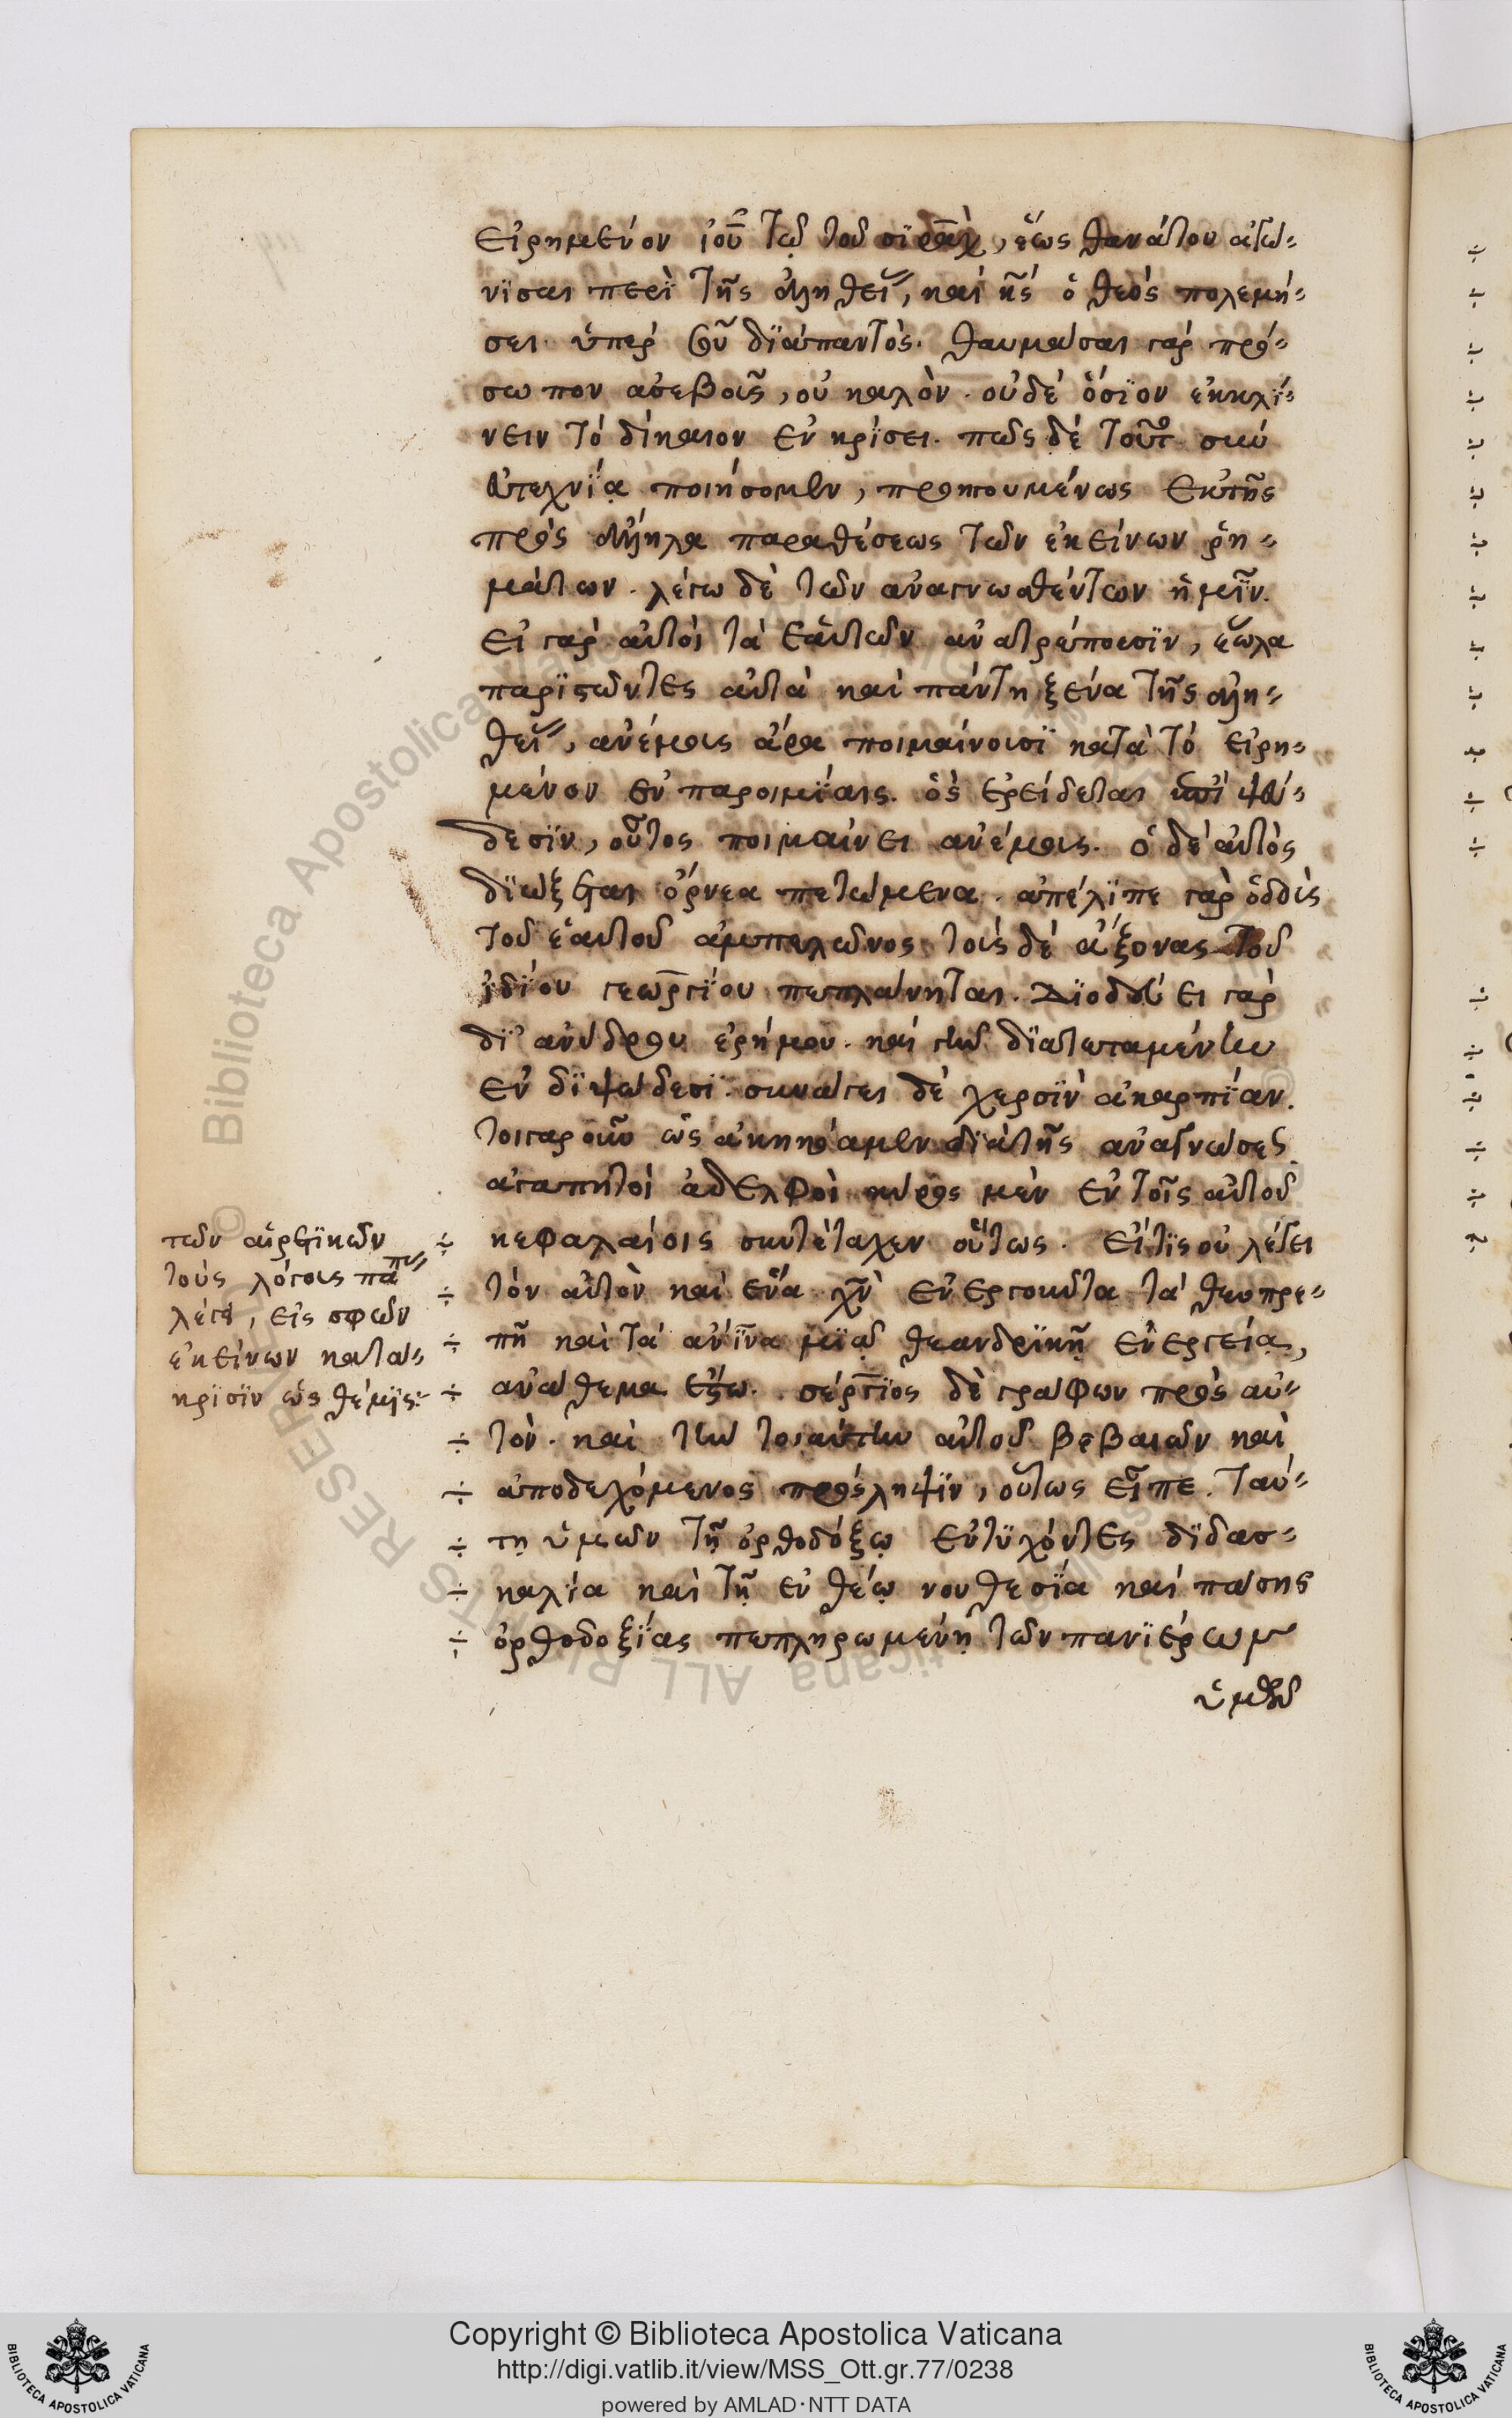 εἰρημένον ἰοῦ τῷ τοῦ σιραχ, ἕως θανάτου ἀγώ-
νισαι περὶ τῆς ἀληθεί, καὶ κς ὁ θεὸς πολεμή-
σει ὑπερ σοῦ διαπαντὸς. θαυμάσαι γὰρ πρό-
σωπον ἀσεβοῦς, οὐ καλὸν. οὐδὲ ὅσιον ἐκκλί-
νειν τὸ δίκαιον ἐν κρίσει. πῶς δὲ τοῦτο σὺν
εὐτεχνία ποιήσομεν, προηγουμένως ἐκ τῆς
πρὸς ἄλληλα παραθέσεως τῶν ἐκείνων ῥη-
μάτων. λέγω δὲ τῶν ἀναγνωσθέντων ἡμῖν.
εἰ γὰρ αὐτοὶ τὰ ἑαυτῶν ἀνατρέπουσιν, ἕωλα
παριστῶντες αὐτὰ καὶ πάντη ξένα τῆς ἀλη-
θεί, ἀνέμους ἄρα ποιμαίνουσι κατὰ τὸ εἰρη-
μένον ἐν παροιμίαις. ὃς ἐρείδεται ἐπὶ ψεύ-
δεσιν, οὗτος ποιμαίνει ἀνέμους. ὁ δὲ αὐτὸς
διώξεται ὄρνεα πετώμενα. ἀπέλιπε γὰρ ὁδοὺς
τοῦ ἑαυτοῦ ἀμπελῶνος τοὺς δὲ ἄξονας τοῦ
ἰδίου γεωργίου πεπλάνηται. διοδεύει γὰρ
δι' ἀνύδρου ἐρήμου. καὶ γῆν διατεταμένην
ἐν διψώδεσι. συνάγει δὲ χερσὶν ἀκαρπίαν.
τοιγαροῦν ὡς ἀκηκόαμεν διὰ τῆς ἀναγνώσες
ἀγαπητοὶ ἀδελφοὶ κύρος μὲν ἐν τοῖς αὐτοῦ
κεφαλαίοις συντέταχεν οὕτως. εἴτις οὐ λέγει
τὸν αὐτὸν καὶ ἕνα χν ἐνεργοῦντα τὰ θεοπρε-
πῆ καὶ τὰ ἀνινα μιᾷ θεανδρικῇ ἐνεργείᾳ,
ἀνάθεμα ἔξω. σέργιος δὲ γράφων πρὸς αὐ-
τὸν. καὶ τὴν τοιαύτην αὐτοῦ βεβαιῶν καὶ
ἀποδεχόμενος πρόσληψιν, οὕτως εἶπε. ταύ-
τη ὑμῶν τῇ ὀρθοδόξῳ ἐντυχόντες διδασ-
καλία καὶ τῇ ἐν θέῳ νουθεσία καὶ πάσης
ὀρθοδοξίας πεπληρωμένῃ τῶν πανιέρωμ
ὑμῶν
τῶν αἱρετικῶν
τοὺς λόγους
λέγει, εἰς σφῶν
ἐκείνων κατά-
κρισιν ὡς θέμις:
Copyright © Biblioteca Apostolica Vaticana
http://digi.vatlib.it/view/MSS_Ott.gr.77/0238
powered by AMLAD·NTT DATA
BIBLIOTECA APOSTOLICA VATICANA
BIBLIOTECA APOSTOLICA VATICANA